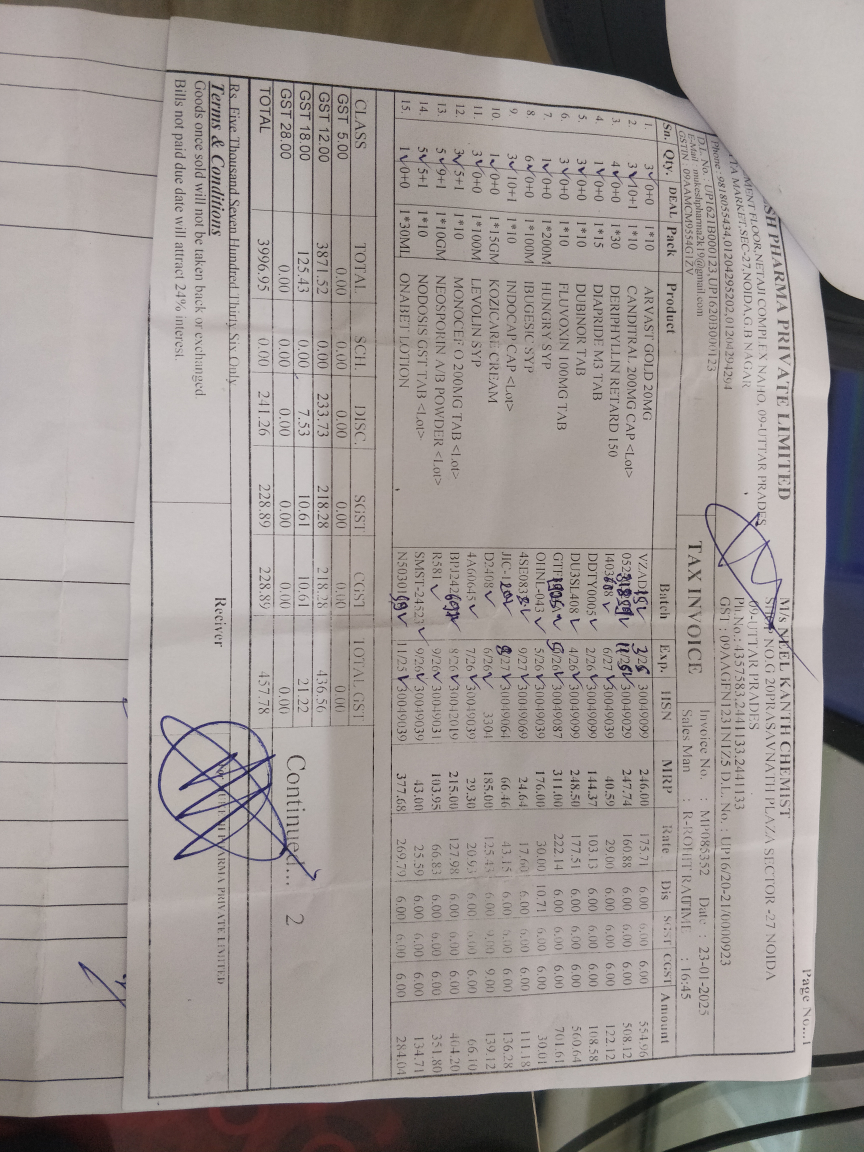 Page No...1
SH PHARMA PRIVATE LIMITED
MENT FLOOR,NETAJI COMPLEX NAHO, 09-UTTAR PRADES
TA MARKET,SEC-27,NOIDA,G.B NAGAR
Phone : 9818055434,01204295202,01204294294
D.L. No. : UP1621B000123,UP1620B000123
E-Mail : mukeshpharma2k19@gmail.com
GSTIN : 09AAMCM9554G1ZV
M/s NEEL KANTH CHEMIST
SHOP NO.G 20PRASAVNATH PLAZA SECTOR -27 NOIDA
09-UTTAR PRADES
Ph.No.: 4357583,2441133,2441133
GST : 09AAGFN1231N1Z5 D.L. No. : UP16/20-21/0000923
TAX INVOICE
Invoice No. : MP085352 Date : 23-01-2025
Sales Man : R-ROHIT RAI TIME : 16:45
Sn. Qty. DEAL Pack Product Batch Exp. HSN MRP Rate Dis SGST CGST Amount
1. 3 0+0 1*10 ARVAST GOLD 20MG 3/26 30049099 246.00 175.71 6.00 6.00 6.00 554.96
2. 3 10+1 1*10 CANDITRAL 200MG CAP <Lot> 11/26 30049029 247.74 160.88 6.00 6.00 6.00 508.12
3. 4 0+0 1*30 DERIPHYLLIN RETARD 150 6/27 30049039 40.59 29.00 6.00 6.00 6.00 122.12
4. 1 0+0 1*15 DIAPRIDE M3 TAB DDTY0005 2/26 30049099 144.37 103.13 6.00 6.00 6.00 108.58
5. 3 0+0 1*10 DUBINOR TAB DU3SL408 4/26 30049099 248.50 177.51 6.00 6.00 6.00 560.64
6. 3 0+0 1*10 FLUVOXIN 100MG TAB 30049087 311.00 222.14 6.00 6.00 6.00 701.61
7. 1 0+0 1*200M HUNGRY SYP OHNL-043 5/26 30049039 176.00 30.00 10.71 6.00 6.00 30.01
8. 6 0+0 1*100M IBUGESIC SYP 9/27 30049069 24.64 17.60 6.00 6.00 6.00 111.18
9. 3 10+1 1*10 INDOCAP CAP <Lot> 8/27 30049064 66.46 43.15 6.00 6.00 6.00 136.28
10. 1 0+0 1*15GM KOZICARE CREAM D2408 6/26 3304 185.00 125.43 6.00 9.00 9.00 139.12
11. 3 0+0 1*100M LEVOLIN SYP 4A60645 7/26 30049039 29.30 20.93 6.00 6.00 6.00 66.10
12. 3 5+1 1*10 MONOCEF O 200MG TAB <Lot> 8/26 30042019 215.00 127.98 6.00 6.00 6.00 404.20
13. 5 9+1 1*10GM NEOSPORIN A/B POWDER <Lot> R581 9/26 30049031 103.95 66.83 6.00 6.00 6.00 351.80
14. 5 5+1 1*10 NODOSIS GST TAB <Lot> SMST-24523 9/26 30049039 43.00 25.59 6.00 6.00 6.00 134.71
15. 1 0+0 1*30ML ONABET LOTION 11/25 30049039 377.68 269.79 6.00 6.00 6.00 284.04
CLASS TOTAL SCH. DISC. SGST CGST TOTAL GST
GST 5.00 0.00 0.00 0.00 0.00 0.00 0.00
GST 12.00 3871.52 0.00 233.73 218.28 218.28 436.56
GST 18.00 125.43 0.00 7.53 10.61 10.61 21.22
GST 28.00 0.00 0.00 0.00 0.00 0.00 0.00
TOTAL 3996.95 0.00 241.26 228.89 228.89 457.78
Continued... 2
Rs. Five Thousand Seven Hundred Thirty Six Only
Terms & Conditions
Goods once sold will not be taken back or exchanged
Bills not paid due date will attract 24% interest.
Reciver
PHARMA PRIVATE LIMITED